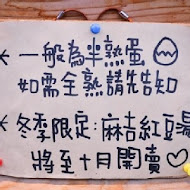 ＊一般為半熟蛋
如需全熟請先告知
＊冬季限定:麻吉紅豆湯
將至十月開賣♡